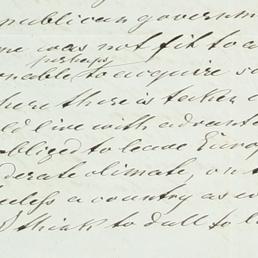 publican governm
me was not fit to a
perhaps
onable to acquire s
here there is taken
ld live with advanta
obliged to leave Euro
derate climate, on t
less a country as
I think to dull to l